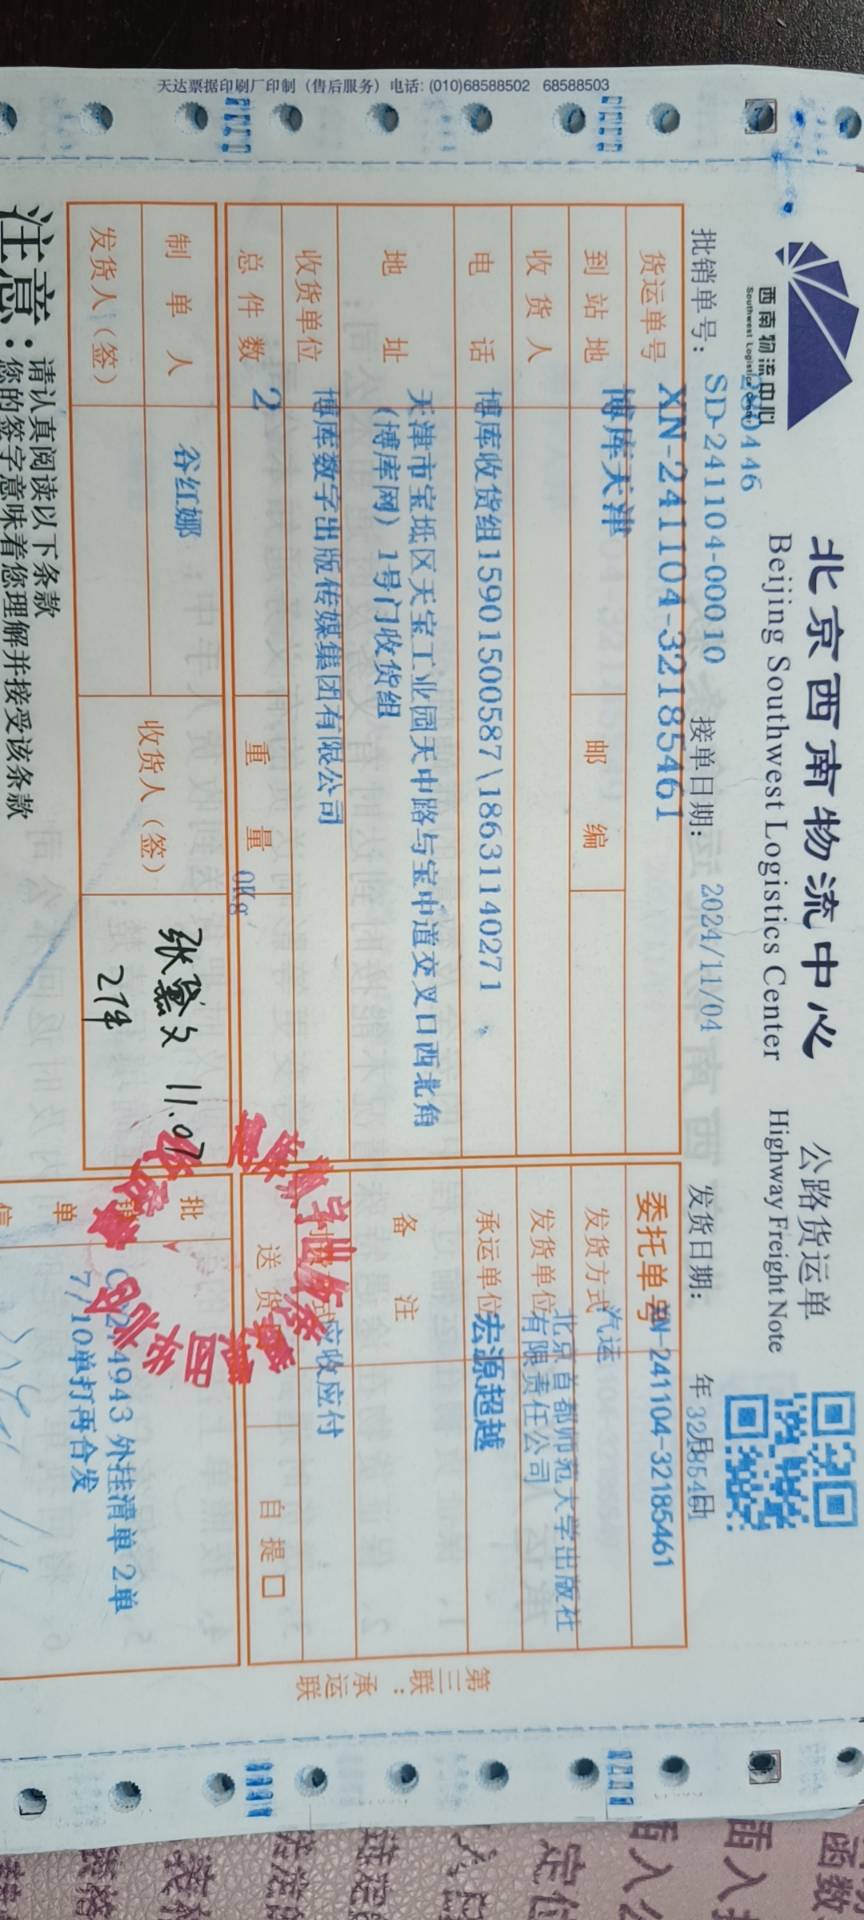 天达票据印刷厂印制（售后服务）电话: (010)68588502 68588503
西南物流中心
Southwest Logistics Center
北京西南物流中心
Beijing Southwest Logistics Center
公路货运单
Highway Freight Note
批销单号: SD-241104-00010
接单日期: 2024/11/04
发货日期: 年 月 日
货运单号 XN-241104-32185461
委托单号 XN-241104-32185461
到站地 博库天津
邮编
发货方式 汽运
收货人
发货单位 北京首都师范大学出版社
有限责任公司
电话 博库收货组15901500587\18631140271
承运单位 宏源超越
地址 天津市宝坻区天宝工业园天中路与宝中道交叉口西北角
(博库网) 1号门收货组
备注
收货单位 博库数字出版传媒集团有限公司
应收应付
总件数 2
重量 0Kg
送货
自提 口
制单人 谷红娜
收货人（签）
张 文 11.07
2件
发货人（签）
批
单
信
4943 外挂清单 2单
7/10单打再合发
注意:
请认真阅读以下条款
您的签字意味着您理解并接受该条款
第三联：承运联